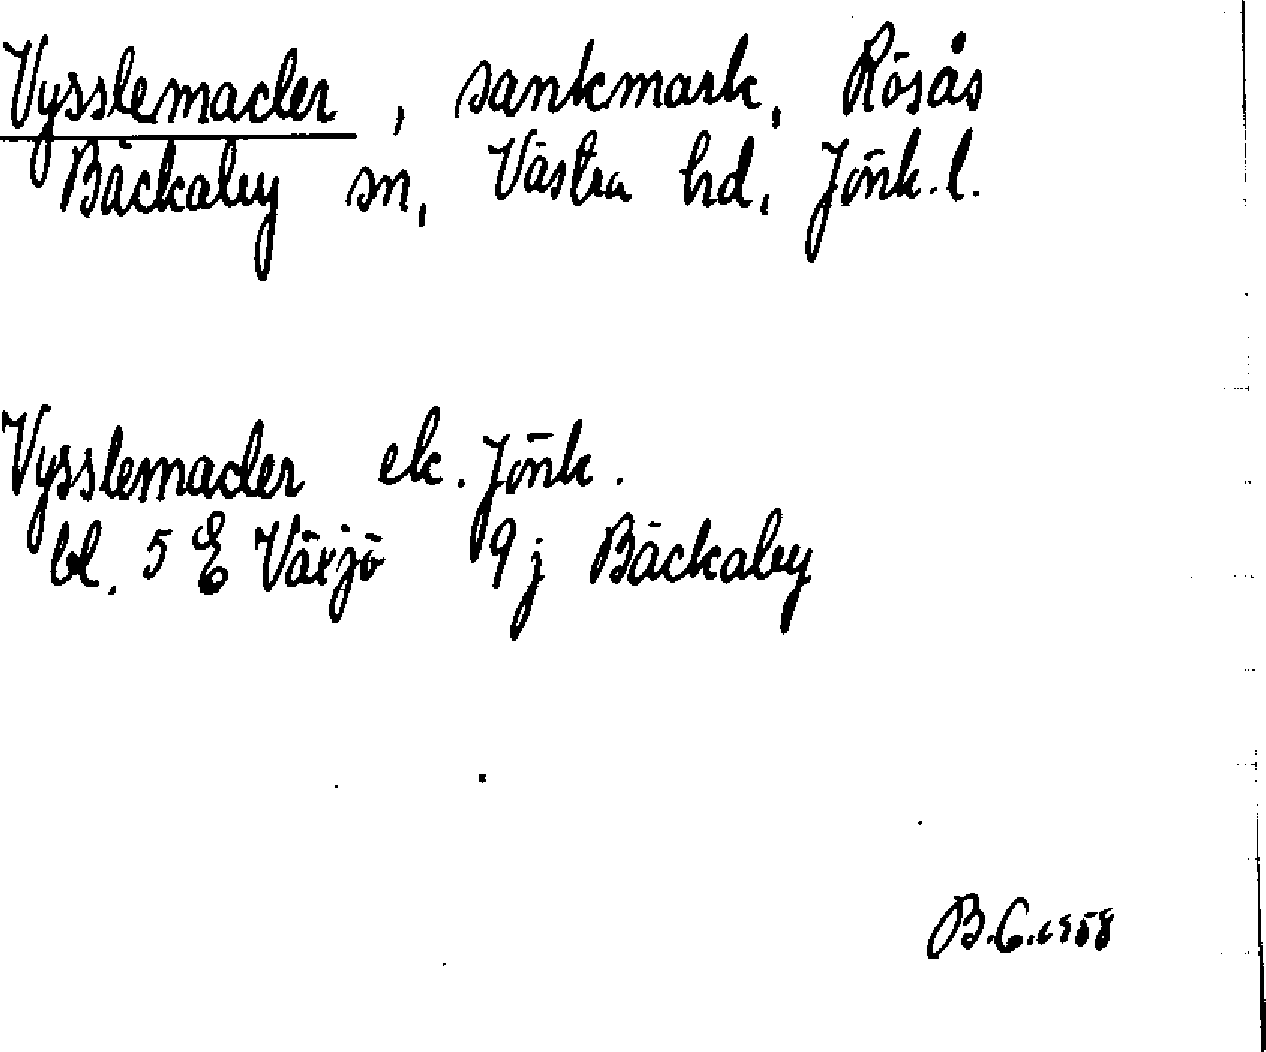 Vysslemader, sankmark, Rösås
Bäckaby sn, Västra hd, Jönk.l.
Vysslemader ek. Jönk.
bl. 5 E Växjö 9 j Bäckaby
B.G. 1958